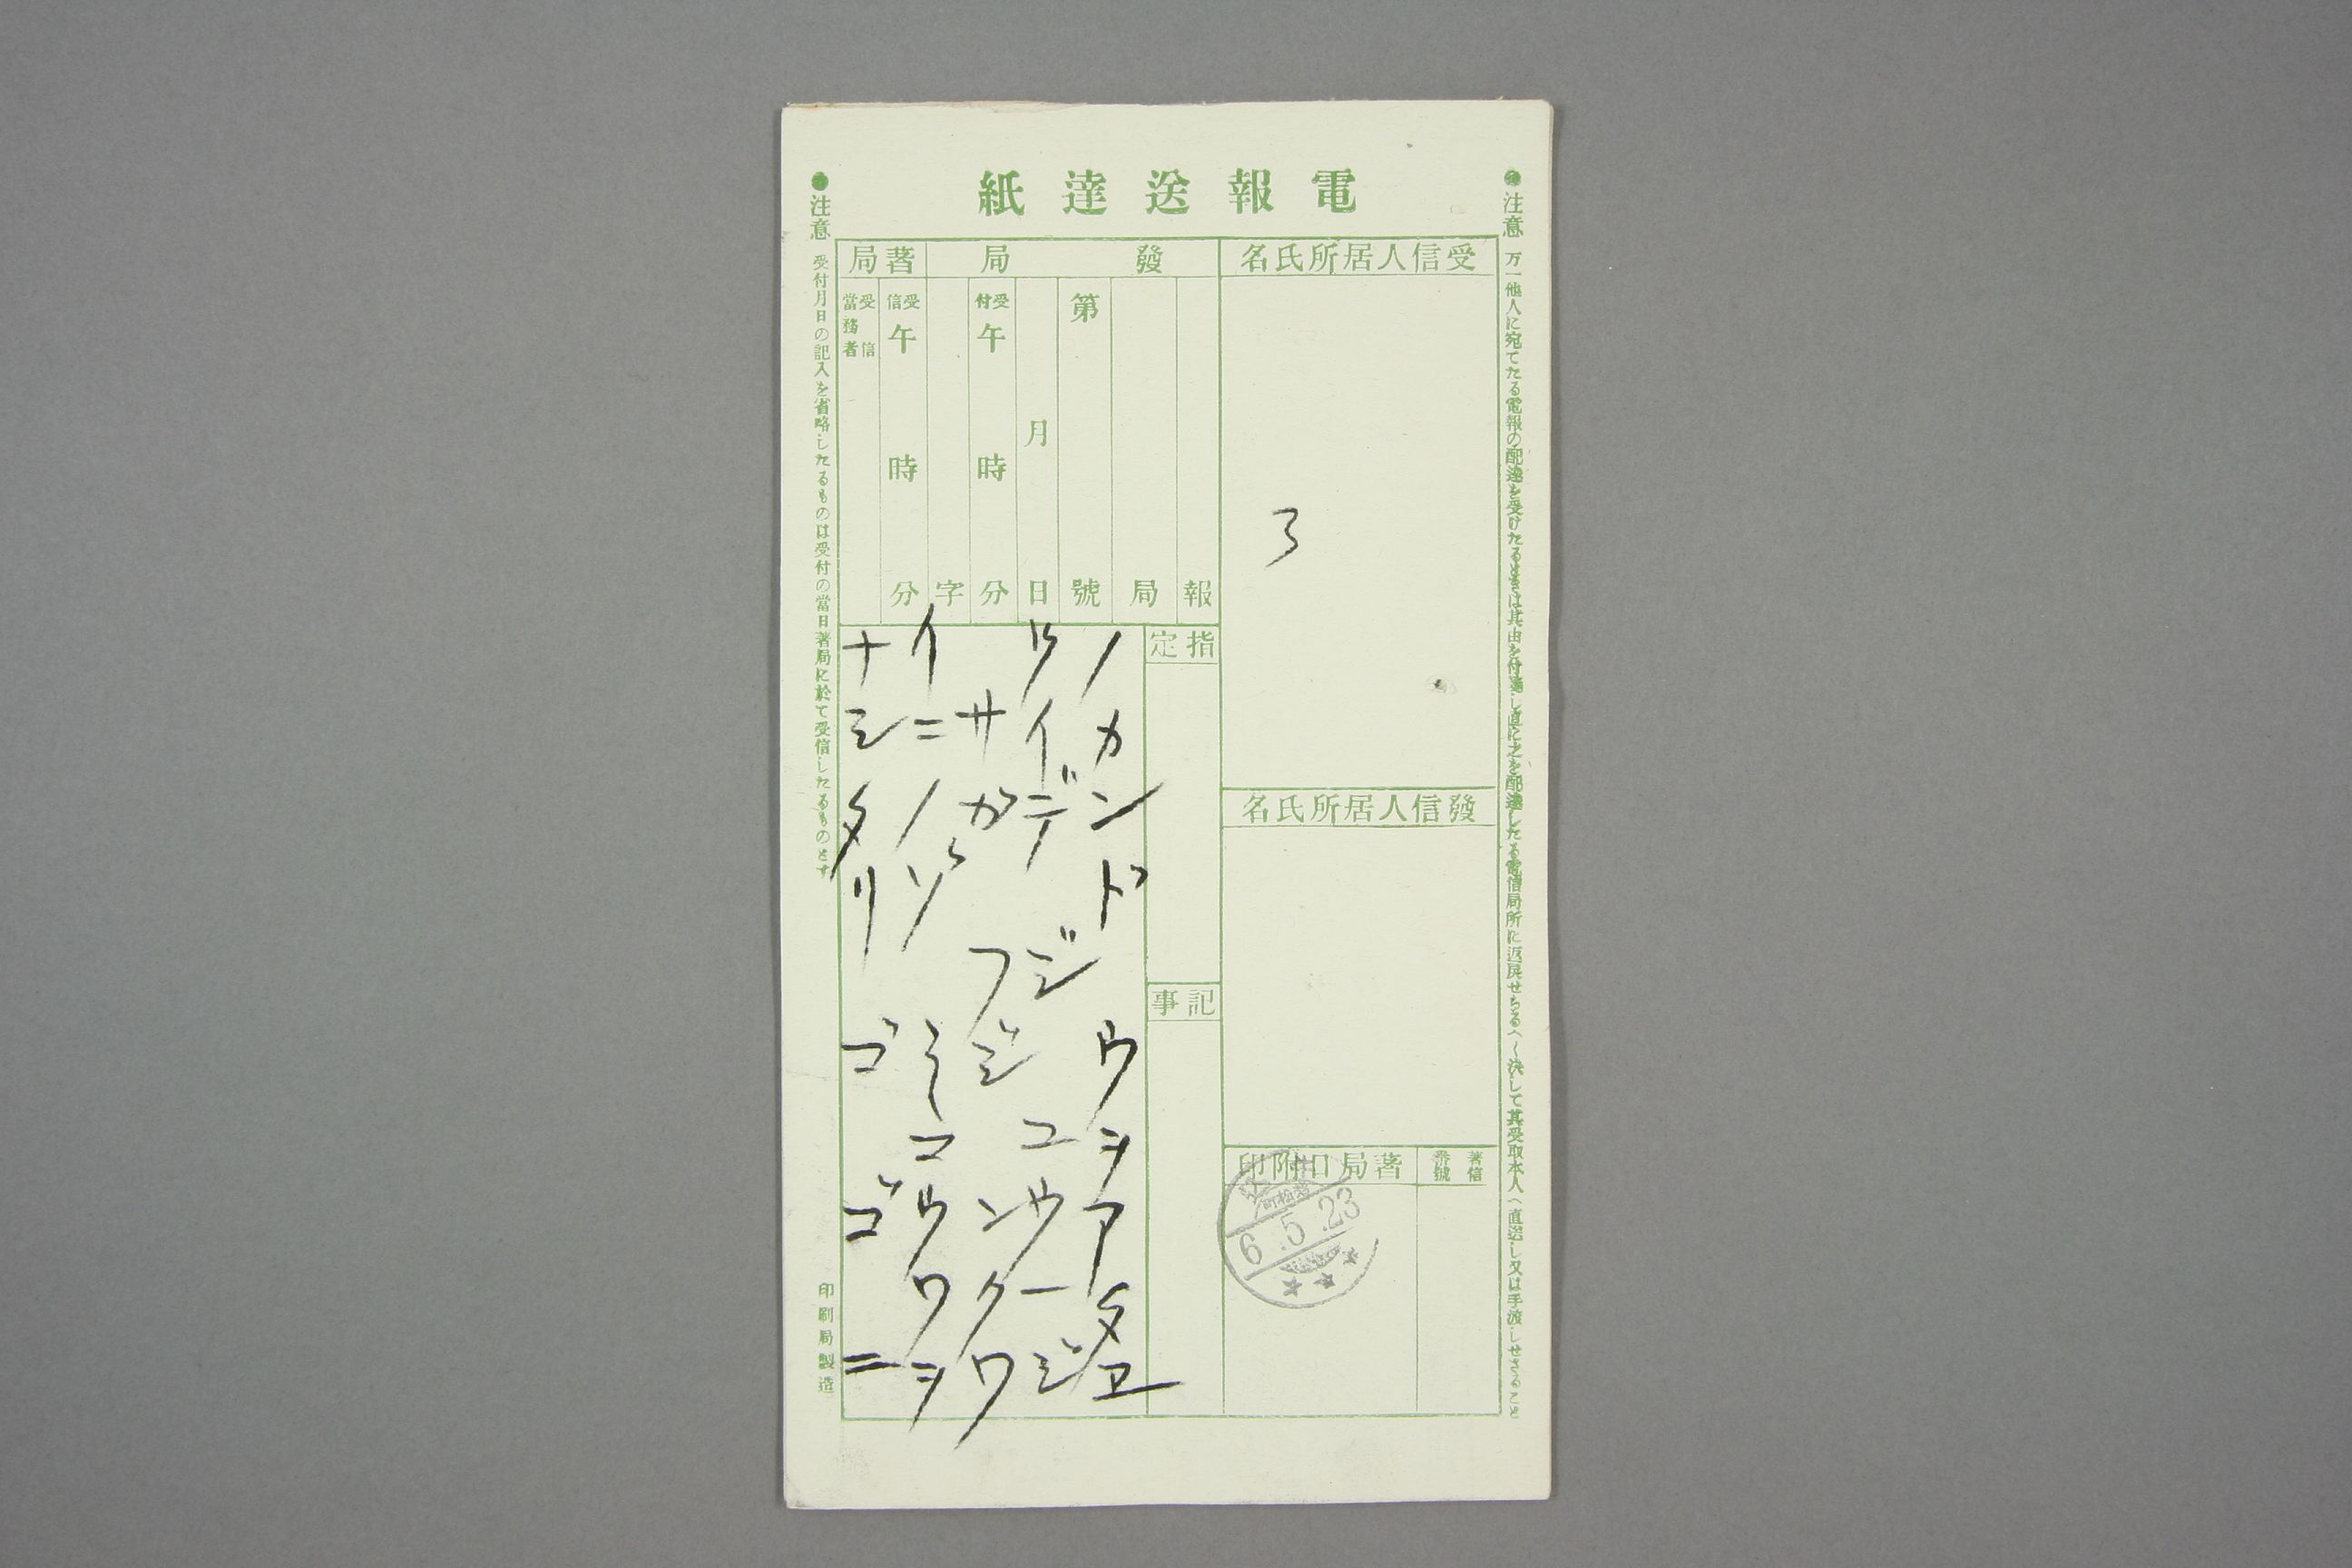 電報送達紙
●注意 万一他人に宛てたる電報の配達を受けたるときは其由を付箋し直に之を配達したる電信局所に返戻せらるへく決して其受取本人へ直送し又は手渡しせさること
受信人居所氏名
3
發信人居所氏名
著局日附印
著信番號
6.5.23
發局
著局
報
局
第 號
月 日
受付 午 時 分
字
受信 午 時 分
受信當務者
指定
記事
ノカンドウヲアタヱ
ワイデジユウージ
サガフジンクワ
イニノゾミコウワヲ
ナシタリゴゴニ
●注意 受付月日の記入を省略したるものは受付の當日著局に於て受信したるものとす
印刷局製造